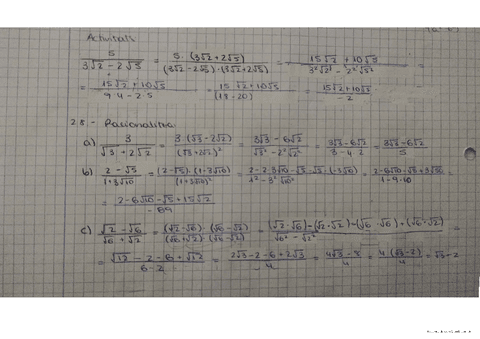 Activitats
5 / (3√2 - 2√5) = 5 · (3√2 + 2√5) / (3√2 - 2√5) · (3√2 + 2√5) = (15√2 + 10√5) / (3²√2² - 2²√5²) =
= (15√2 + 10√5) / (9·4 - 2·5) = (15√2 + 10√5) / (18 - 20) = (15√2 + 10√5) / -2
28.- Racionalitza:
a) 3 / (√3 + 2√2) = 3 · (√3 - 2√2) / (√3 + 2√2)² = (3√3 - 6√2) / (√3² - 2²√2²) = (3√3 - 6√2) / (3 - 4·2) = (3√3 - 6√2) / 5
b) (2 - √5) / (1 + 3√10) = (2 - √5) · (1 - 3√10) / (1 + 3√10)² = = (2 - 6√10 - √5 + 3√50) / (1 - 9·10)
(2 - 6√10 - √5 + 15√2) / -89
c) (√2 - √6) / (√6 + √2) = (√2 - √6) · (√6 - √2) / (√6 + √2) · (√6 - √2) = (√2 · √6) - (√2 · √2) - (√6 · √6) + (√6 · √2) / (√6² - √2²) =
= (√12 - 2 - 6 + √12) / (6 - 2) = (2√3 - 2 - 6 + 2√3) / 4 = (4√3 - 8) / 4 = 4 (√3 - 2) / 4 = √3 - 2